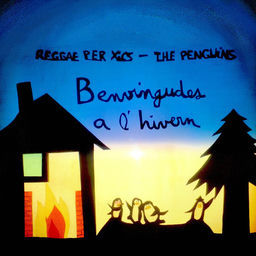 REGGAE PER XICS - THE PENGUINS
Benvingudes
a l'hivern